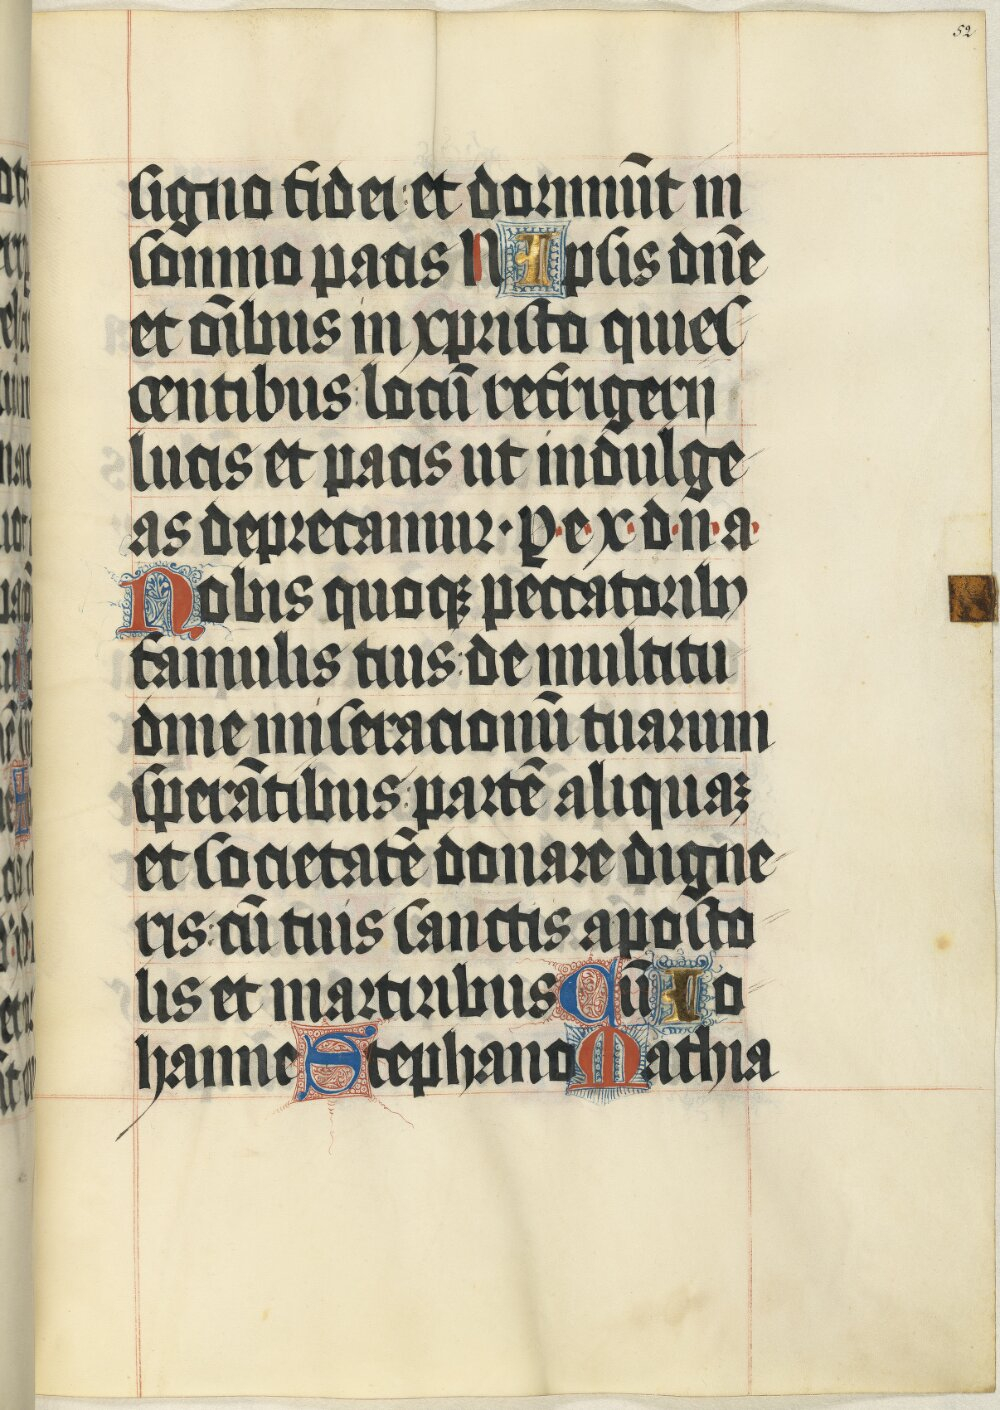 52
signo fidei : et dormiūt in
somno pacis N Ipsis dn̄e
et oībus in xpristo quies
centibus : locū refrigerij
lucis et pacis ut indulge
as deprecamur · P · e · x · d · n · a ·
Nobis quoqꝫ peccatoribꝰ
famulis tuis : de multitu
dine miseracionū tuarum
sperātibus : partē aliquaꝫ
et societatē donare digne
ris : cū tuis sanctis aposto
lis et martiribus Cū Io
hanne Stephano Mathia